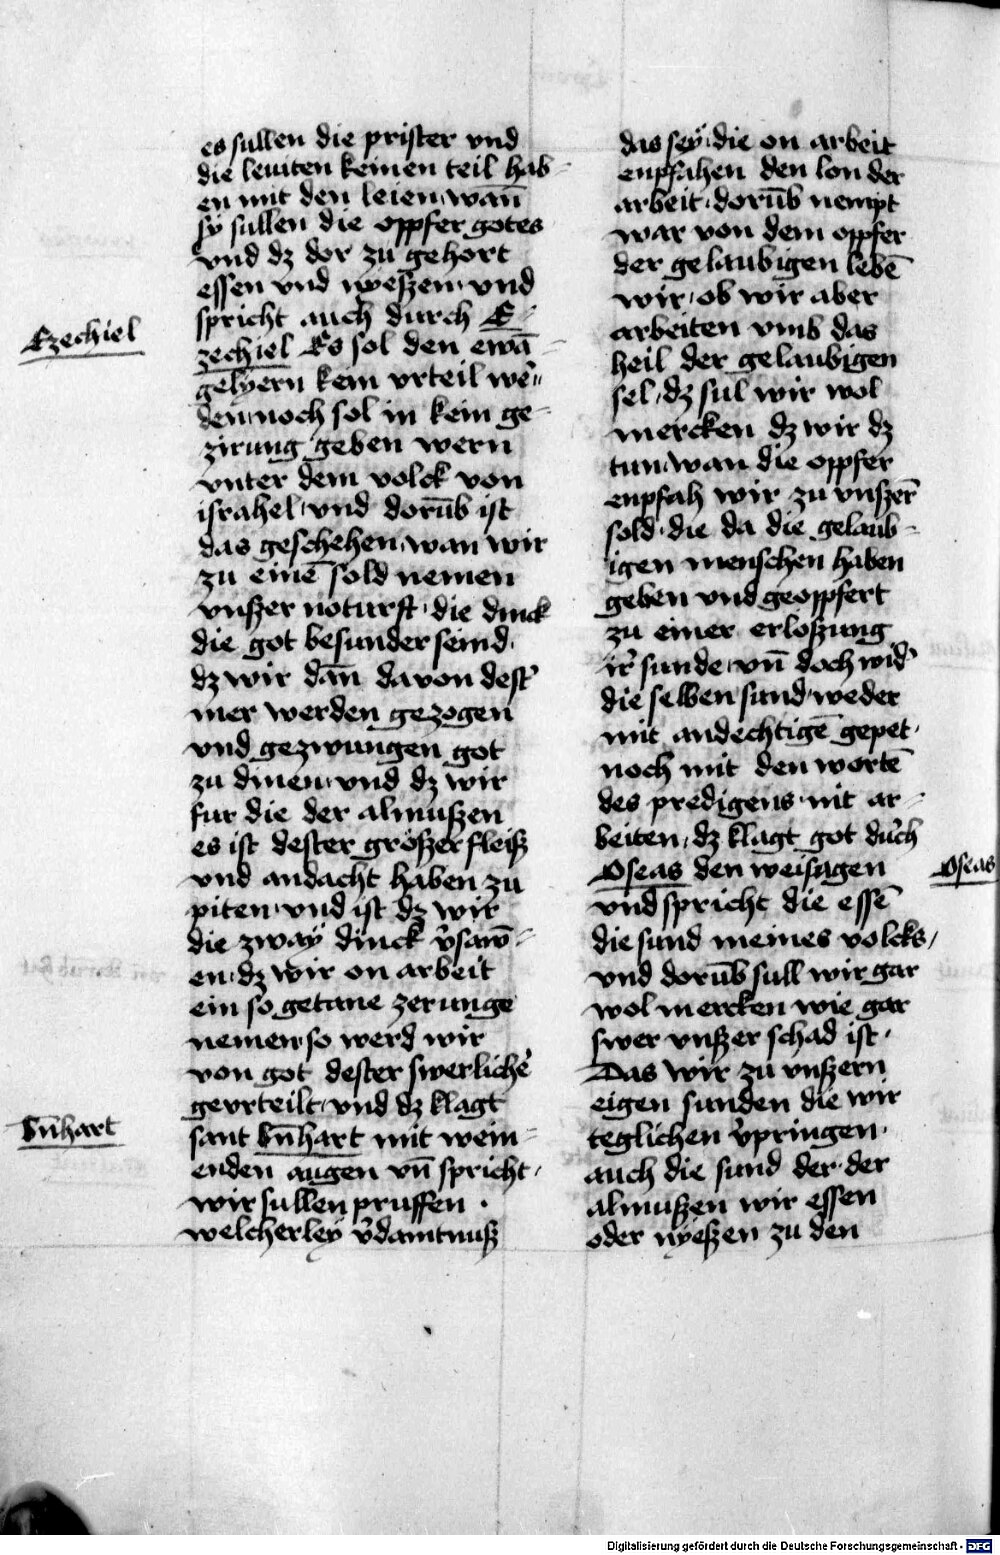 es sullen die prister vnd
die leuiten keinen teil hab=
en mit den leien wan̄
sÿ sullen die oppfer gotes
vnd dz dor zu gehort
essen vnd nyeszen vnd
spricht auch durch E=
zechiel Es sol den ewā=
gelyern kein vrteil we͛=
den noch sol in kein ge=
zirung geben wern
vnter dem volck von
israhel vnd dorūb ist
das geschehen wan wir
zu einē sold nemen
vnszer noturft die dinck
die got besunder seind
dz wir dan̄ davon dest͛
mer werden gezogen
vnd gezwungen got
zu dinen vnd dz wir
fur die der almuszen
es ist dester gröszer fleisz
vnd andacht haben zu
piten vnd ist dz wir
die zwaÿ dinck v͛sawm̄=
en dz wir on arbeit
ein so getane zerunge
nemen so werd wir
von got dester swerlichē
gevrteilt vnd dz klagt
sant bn̄hart mit wein=
enden augen vn̄ spricht
wir sullen pruffen ·
welcherleÿ v͛damtnusz
Ezechiel
bn̄hart
das seÿ die on arbeit
enpfahen den lon der
arbeit dorūb nempt
war von dem oppfer
der gelaubigen lebē
wir ob wir aber
arbeiten vmb das
heil der gelaubigen
sel dz sul wir wol
mercken dz wir dz
tun wan die oppfer
enpfah wir zu vnszer̄
sold die da die gelaub=
igen menschen haben
geben vnd geoppfert
zu einer erloszung
ir͛ sunde vn̄ doch wid͛
die selben sund weder
mit andechtigē gepet
noch mit den wortē
des predigens nit ar=
beiten dz klagt got durch
Oseas den weisagen
vnd spricht die essē
die sund meines volcks
vnd dorūb sull wir gar
wol mercken wie gar
swer vnszer schad ist ·
Das wir zu vnszern
eigen sunden die wir
teglichen v͛pringen
auch die sund der der
almuszen wir essen
oder nyeszen zu den
Oseas
Digitalisierung gefördert durch die Deutsche Forschungsgemeinschaft - DFG